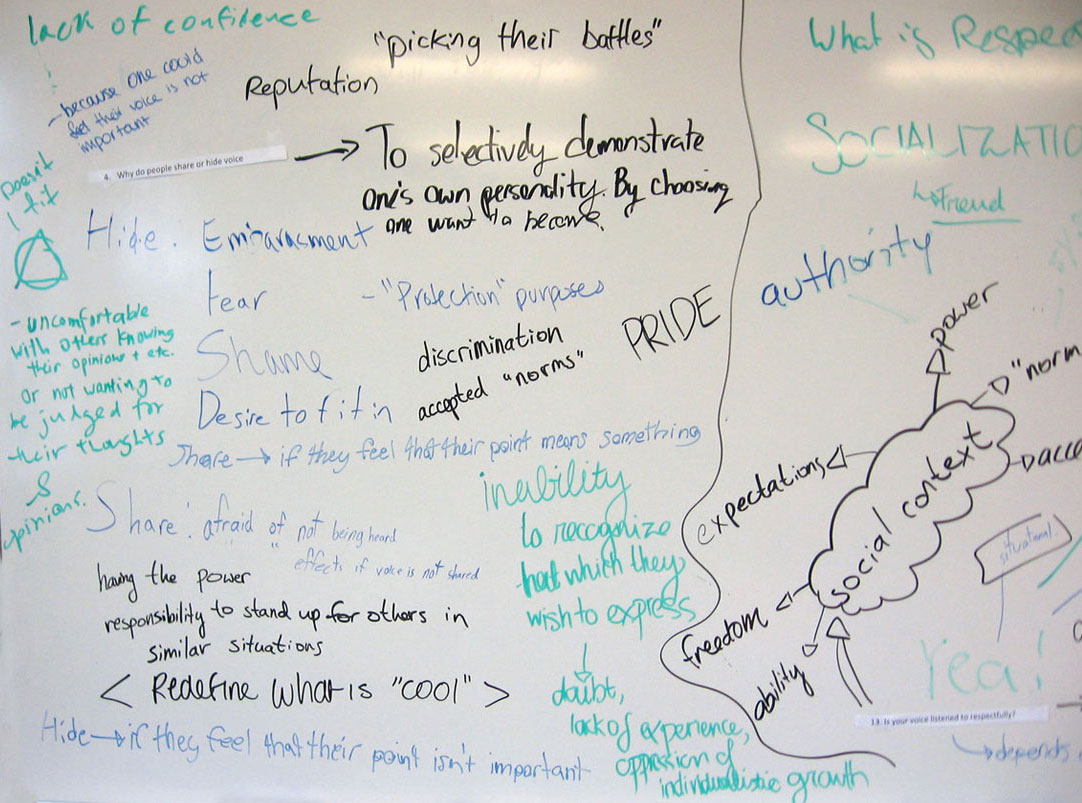 lack of confidence
- because one could
feel their voice is not
important
"picking their battles"
Reputation
4. Why do people share or hide voice
To selectively demonstrate
one's own personality. By choosing
one want to become.
Doesn't
fit
Hide. Embarasment
fear
- "Protection" purposes
Shame
discrimination
accepted "norms"
PRIDE
Desire to fit in
- uncomfortable
with others knowing
their opinions + etc.
or not wanting to
be judged for
their thoughts
&
opinions.
Share → if they feel that their point means something
Share: afraid of not being heard
" effects if voice is not shared
having the power
responsibility to stand up for others in
similar situations
< Redefine what is "cool" >
Hide → if they feel that their point isn't important
inability
to recognize
that which they
wish to express
↓
doubt,
lack of experience,
oppression of
individualistic growth
What is Respec
SOCIALIZATIO
Friend
authority
power
"norm
acce
expectations
social context
freedom
ability
situational
Yea!
13. Is your voice listened to respectfully?
→ depends